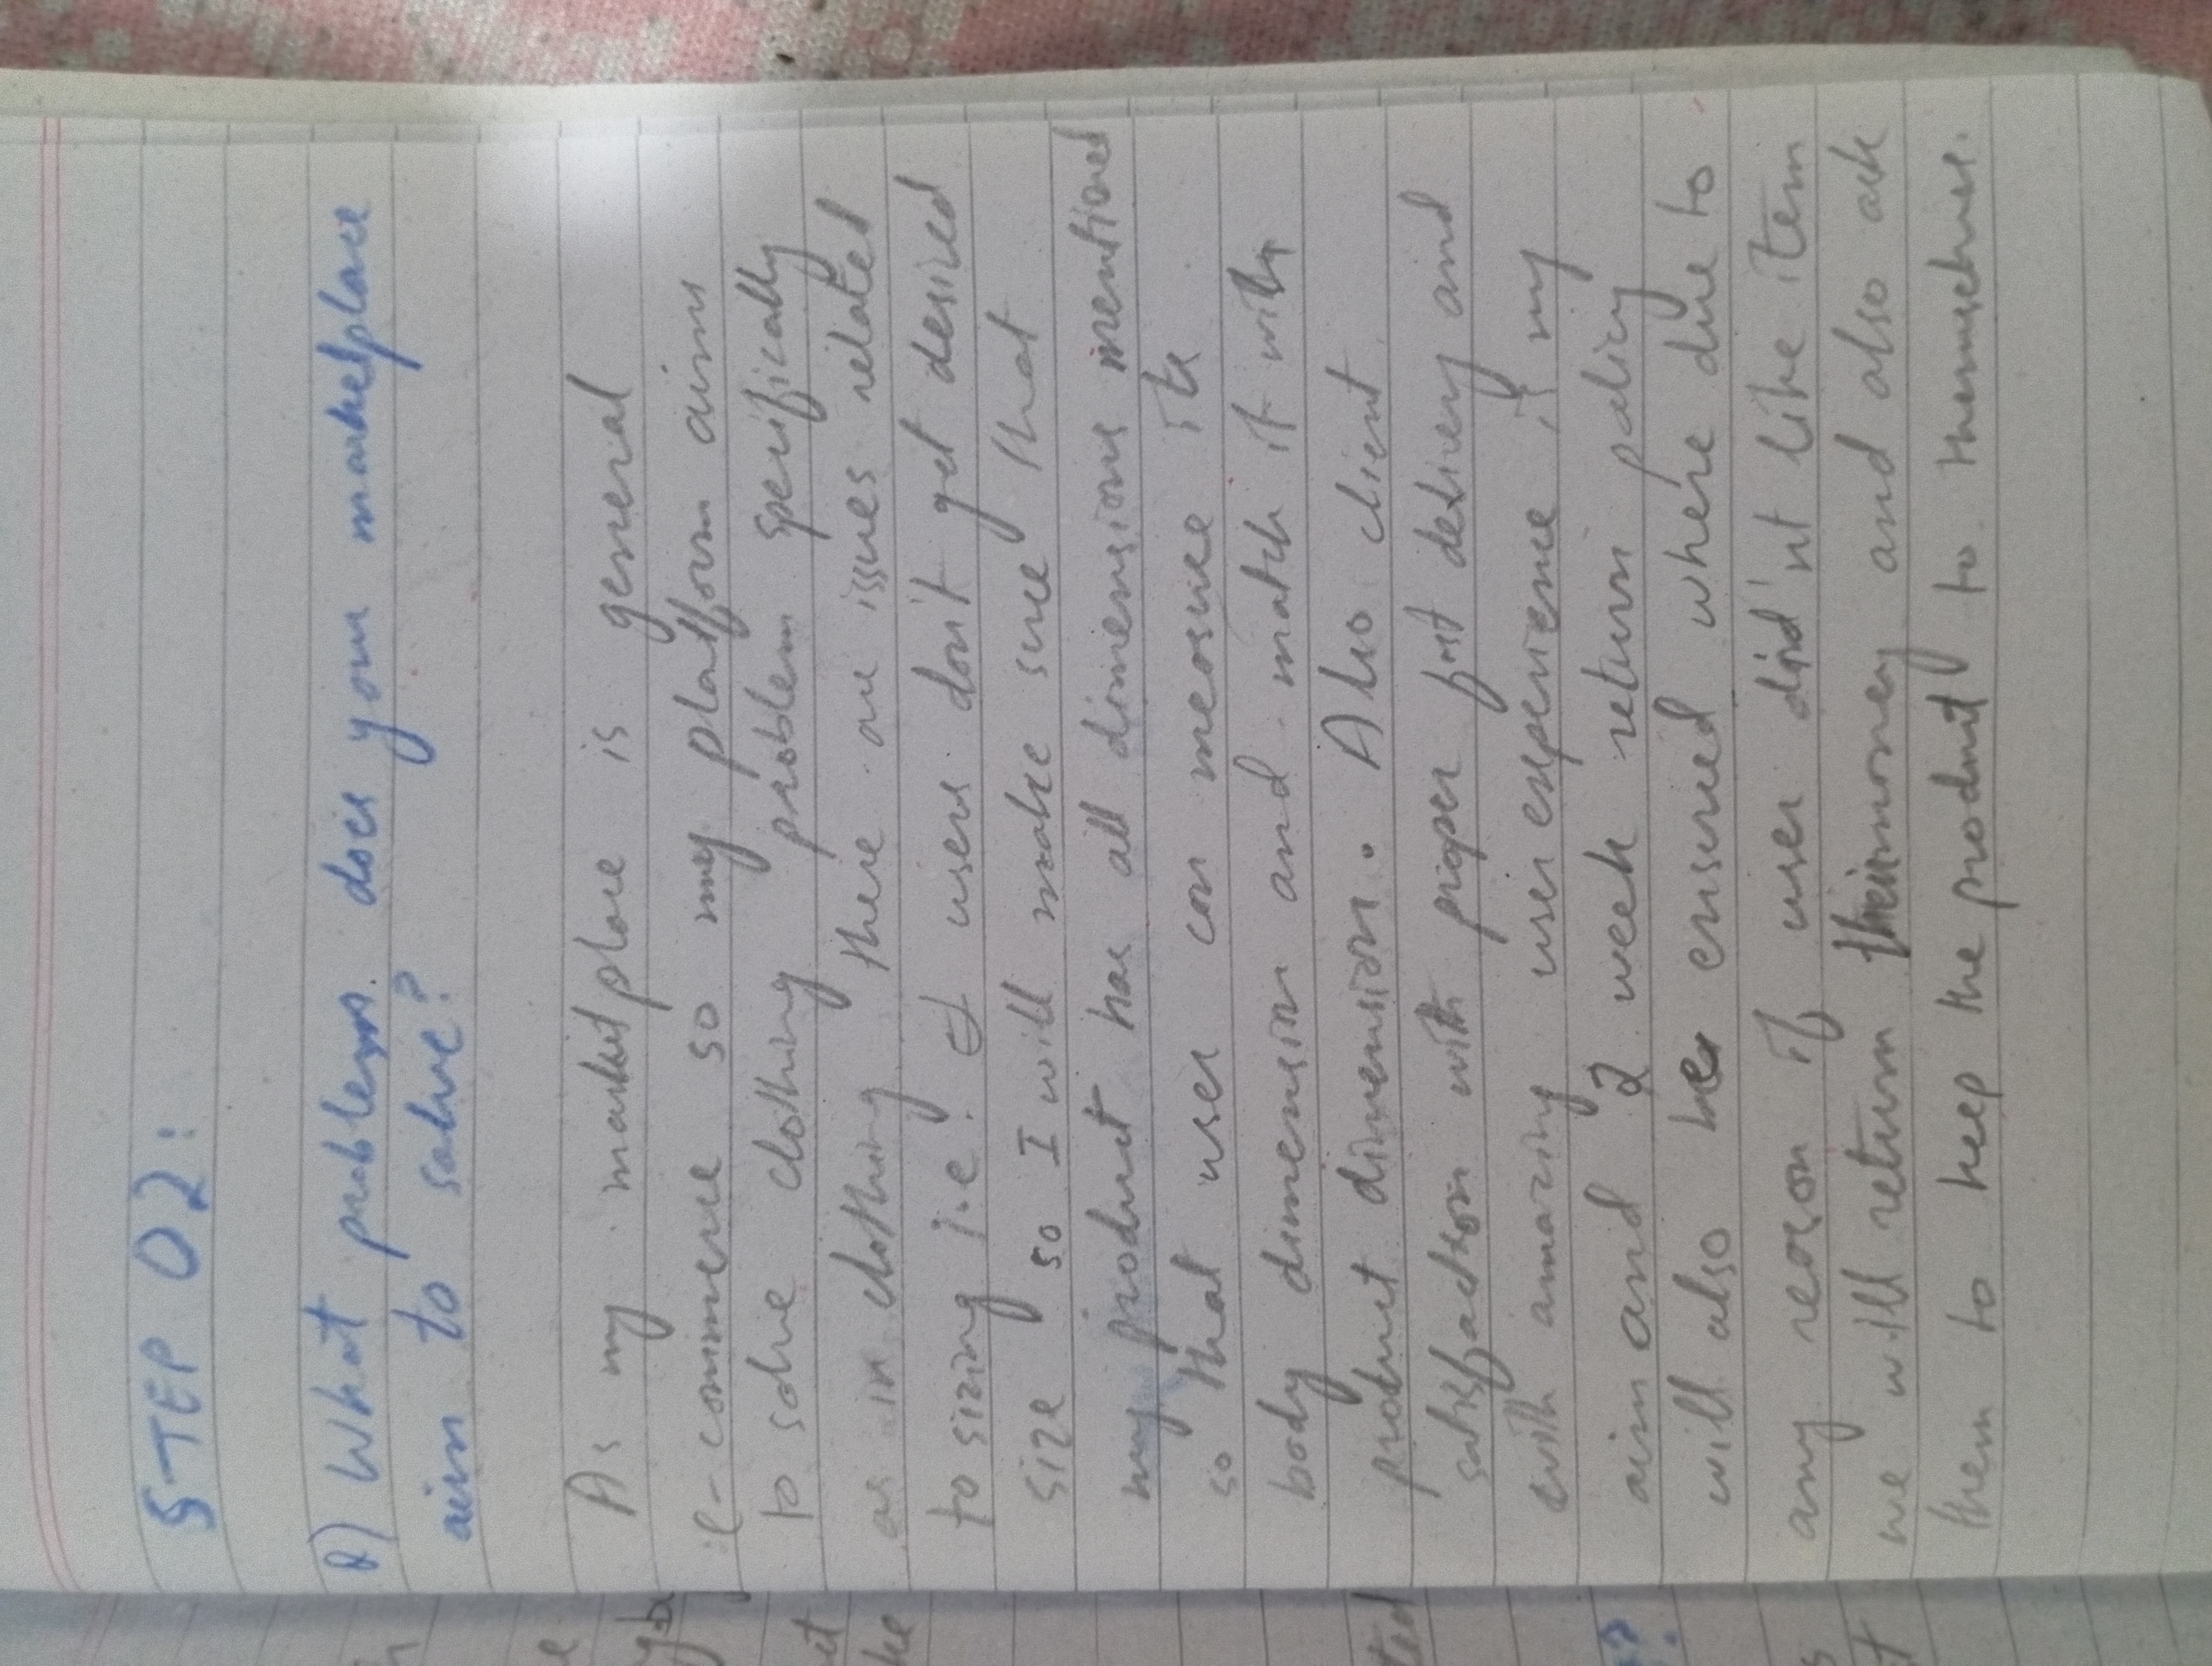 STEP 02:
Q) What problems. does your marketplace
aim to solve?
As my marketplace is general
e-commerce so my platform aims
to solve clothing problem specifically
as in clothing there are issues related
to sizing i.e. users don't get desired
size so I will make sure that
my product has all dimensions mentioned
so that user can measure its
body dimension and match it with
product dimension. Also client
satisfaction with proper fast delivery and
with amazing user experience is my
aim and 2 week return policy
will also be ensured where due to
any reason if user did'nt like item
we will return their money and also ask
them to keep the product to themselves.